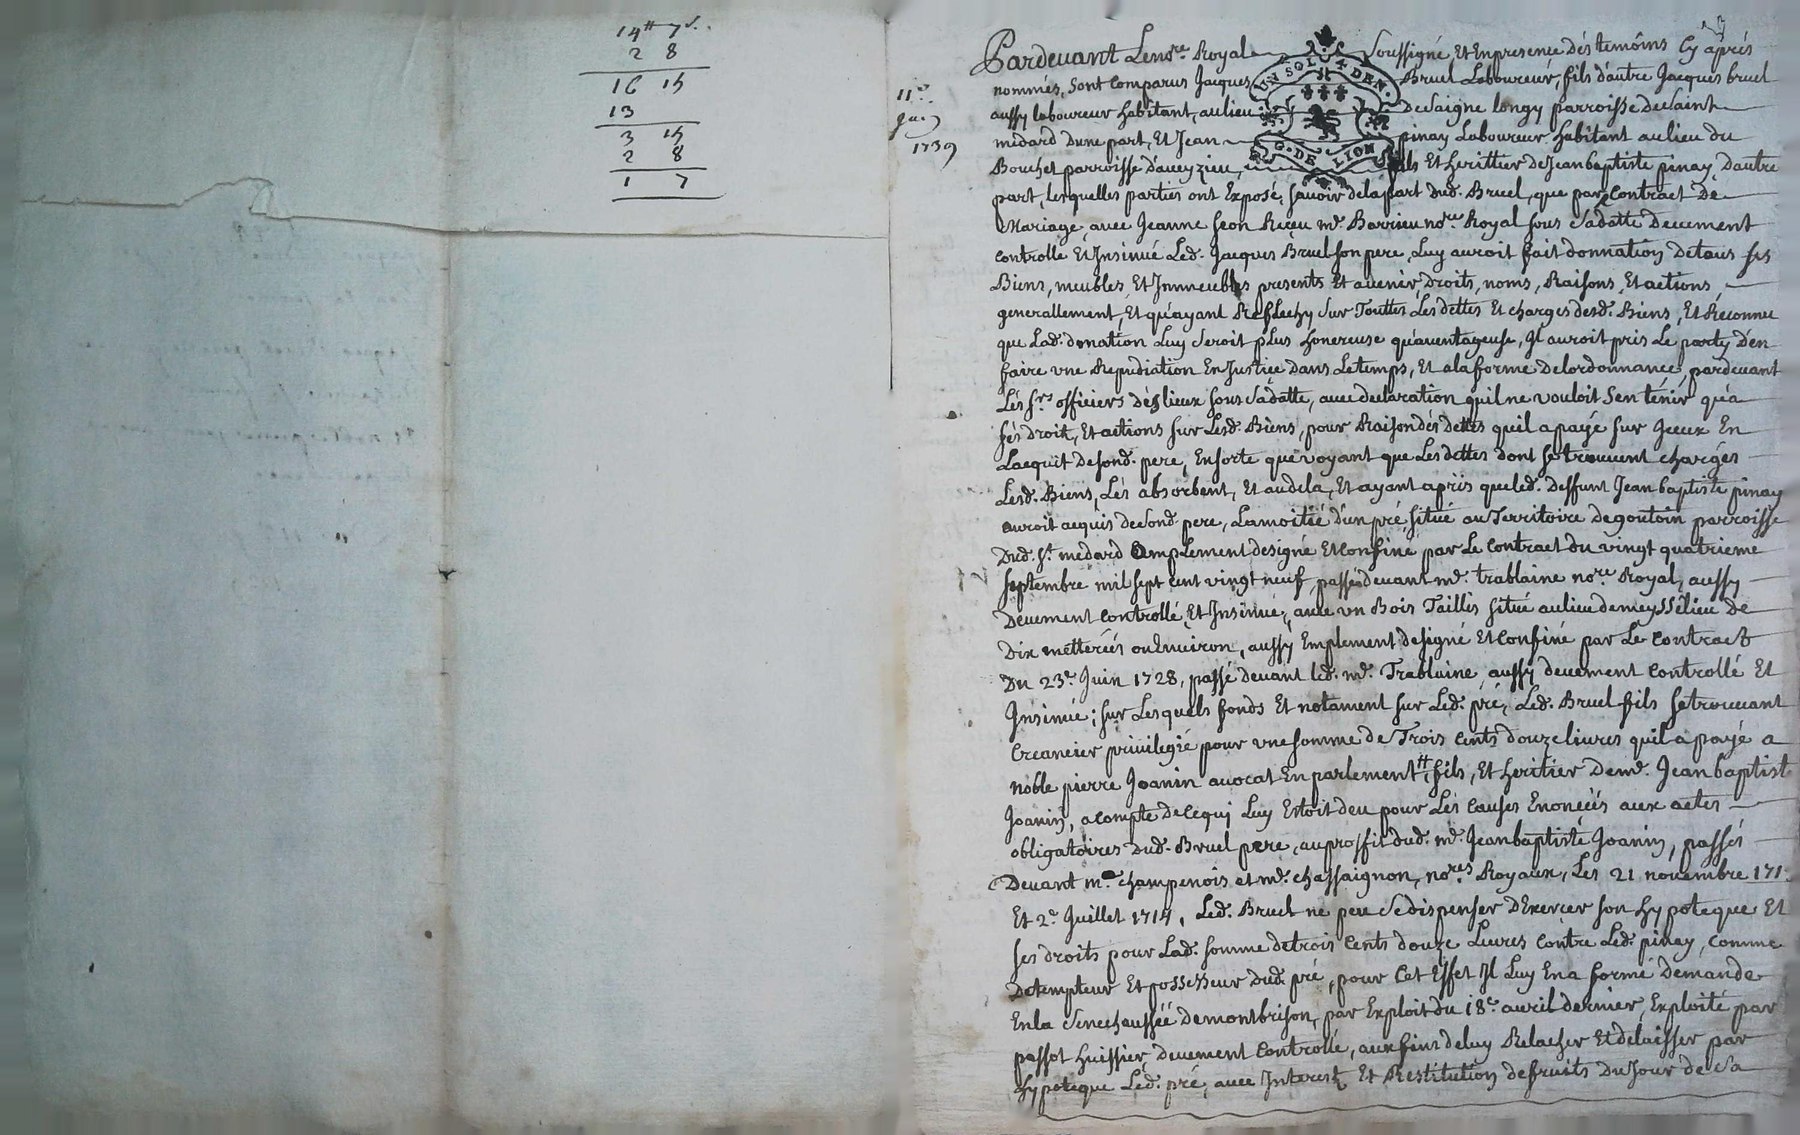 14ᵗᵗ 7ˢ
2 8
16 15
13
3 15
2 8
1 7
11ᵉ
Juin
1739
Pardevant Le noʳᵉ Royal soussigné, Et En presence dés temoins Cy aprés
UN SOL 4 DEN.
G. DE LION
nommés, sont Comparus Jacques Bruel Laboureur, fils d'autre Jacques bruel
aussy laboureur habitant, au lieu de saigne longy parroisse de Saint
medard dune part, Et Jean pinay Laboureur habitant au lieu du
Bouchet parroisse d'aveyzieu, fils Et herittier de Jean baptiste pinay, Dautre
part, Lesquelles parties ont Exposé, savoir de la part dud. Bruel, que par Contract De
Mariage, avec Jeanne Reçeu mᵉ. Barrieu noʳᵉ. Royal sous sa datte Deuement
Controllé Et Insinué Led. Jacques Bruel son pere, Luy auroit fait donnation De tous ses
Biens, meubles, Et Immeubles presents Et avenir Droits, noms, Raisons, Et actions,
generallement, Et qu'ayant Reflechy sur Touttes Les dettes Et charges desd. Biens, Et Reconnu
que Lad. donation Luy Seroit plus honereuse qu'aventageuse, Jl auroit pris Le party D'en
faire vne Repudiation En Justice Dans Le temps, Et a la forme De lordonnance, pardevant
Lés sʳˢ officiers dés lieux sous sa datte, avec declaration quil ne vouloit S'en ténir qu'a
sés droits, Et actions sur Lesd. Biens, pour Raison dés dettes quil a payé sur Jceux En
Lacquit de sond. pere, En sorte que voyant que Les dettes dont se trouvent chargés
Lesd. Biens, Lés absorbent, Et au dela, Et ayant apris que led. Deffunt Jean baptiste pinay
auroit acquis de sond. pere, La moitié d'un pré, situé au Territoire de goutoin parroisse
Dud. sᵗ. medard amplement designé Et Confiné par Le contract du vingt quatrieme
septembre mil sept cent vingt neuf, passé devant mᵉ. trablaine noʳᵉ Royal, aussy
Deuement Controllé, Et Insinué, avec vn Bois Taillis situé au lieu de meyssélieu de
Dix mettereés ou Environ, aussy Emplement designé Et Confiné par Le Contract
Du 23ᵉ. Juin 1728, passé devant led. mᵉ. Trablaine, aussy deuement Controllé Et
Insinué; sur Lesquels fonds Et notament sur Led. pré, Led. Bruel fils se trouvant
Creancier privilegié pour vne somme de Trois Cents douze livres quil a payé a
noble pierre Joanin avocat En parlement, fils, Et heritier De mᵉ. Jean baptiste
Joanin, a compte De Ce qui Luy Estoit deu pour Lés Causes Enoncéés aux actes
obligatoires dud. Bruel pere, au proffit dud. mᵉ. Jean baptisté Joanin, passés
Devant mᵉ champenois et mᵉ. chassaignon, noʳᵉˢ Royaux, Les 21 novembre 171
Et 2ᵉ Juillet 1714, Led. Bruel ne peu se dispenser D'Exercer son hypoteque Et
ses droits pour Lad. somme de trois Cents douze Livres Contre Led. pinay, Comme
Detempteur Et possesseur dud. pré, pour Cet Effet Jl Luy En a formé Demande
En la Senechaussée De montbrison, par Exploit du 18ᵉ avril dernier, Exploité par
passot huissier deuement Controllé, aux fins de luy Relacher Et delaisser par
hypoteque Led. pré, avec Interest, Et Restitution de fruits Du Jour de Sa